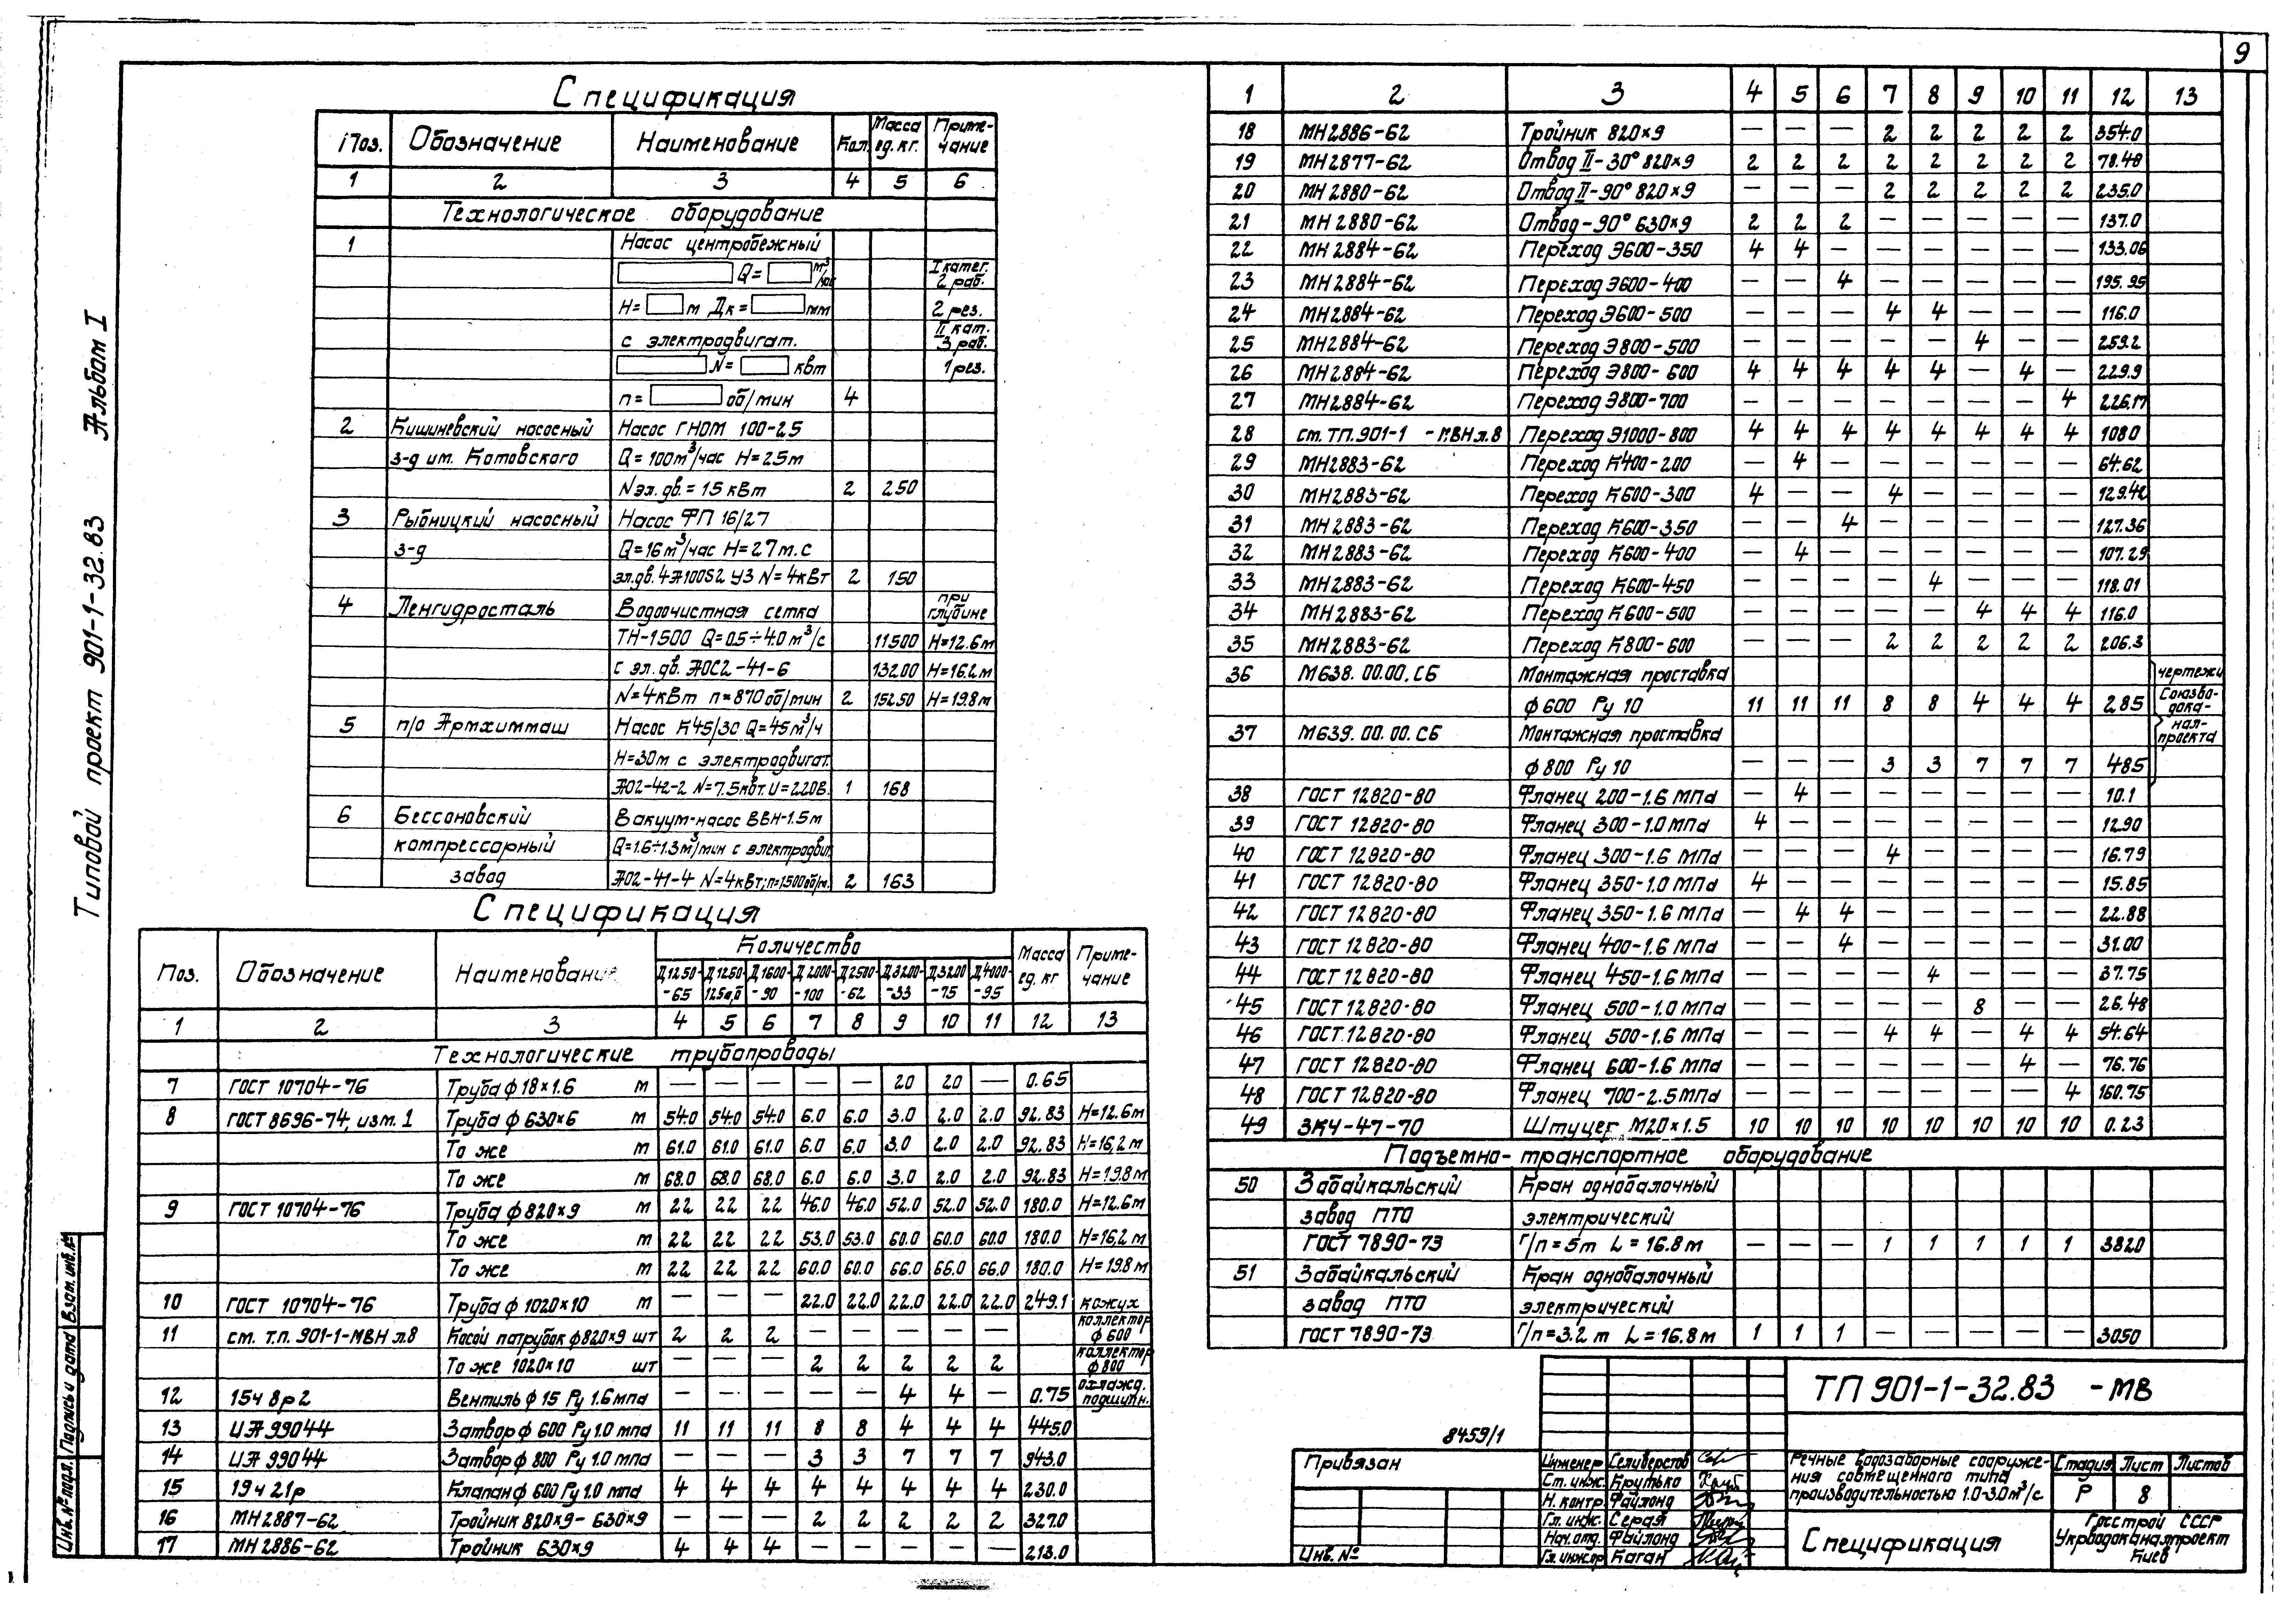 9
Типовой проект 901-1-32.83 Альбом I
Спецификация
Поз. Обозначение Наименование Кол. Масса ед. кг. Примечание
1 2 3 4 5 6
Технологическое оборудование
1 Насос центробежный
Q= м³/час I катег. 2 раб.
Н= м Дк= мм 2 рез.
с электродвигат. II кат. 3 раб.
N= квт 1 рез.
n= об/мин 4
2 Кишиневский насосный Насос ГНОМ 100-25
з-д им. Котовского Q=100м³/час Н=25м
Nэл.дв.=15 кВт 2 250
3 Рыбницкий насосный Насос ФП 16/27
з-д Q=16м³/час Н=27м.с
эл.дв. 4А100S2 У3 N=4кВт 2 150
4 Ленгидросталь Водоочистная сетка при глубине
ТН-1500 Q=0.5÷4.0 м³/с 11500 Н=12.6м
с эл.дв. АОС2-41-6 13200 Н=16.2м
N=4кВт n=870об/мин 2 15250 Н=19.8м
5 п/о Армхиммаш Насос К45/30 Q=45м³/ч
Н=30м с электродвигат.
АО2-42-2 N=7.5квт. U=220В. 1 168
6 Бессоновский Вакуум-насос ВВН-1.5м
компрессорный Q=1.6÷1.3м³/мин с электродвиг.
завод АО2-41-4 N=4кВт; n=1500об/м. 2 163
Спецификация
Поз. Обозначение Наименование Количество Масса ед. кг Примечание
Д1250-65 Д1250-125а,б Д1600-90 Д2000-100 Д2500-62 Д3200-33 Д3200-75 Д4000-95
1 2 3 4 5 6 7 8 9 10 11 12 13
Технологические трубопроводы
7 ГОСТ 10704-76 Труба ф18×1.6 м — — — — — 20 20 — 0.65
8 ГОСТ 8696-74, изм. 1 Труба ф 630×6 м 54.0 54.0 54.0 6.0 6.0 3.0 2.0 2.0 92.83 Н=12.6м
То же м 61.0 61.0 61.0 6.0 6.0 3.0 2.0 2.0 92.83 Н=16,2м
То же м 68.0 68.0 68.0 6.0 6.0 3.0 2.0 2.0 92.83 Н=19.8м
9 ГОСТ 10704-76 Труба ф 820×9 м 22 22 22 46.0 46.0 52.0 52.0 52.0 180.0 Н=12.6м
То же м 22 22 22 53.0 53.0 60.0 60.0 60.0 180.0 Н=16,2м
То же м 22 22 22 60.0 60.0 66.0 66.0 66.0 180.0 Н=19.8м
10 ГОСТ 10704-76 Труба ф 1020×10 м — — — 22.0 22.0 22.0 22.0 22.0 249.1 кожух
11 см. т.п. 901-1-МВН л.8 Косой патрубок ф820×9 шт 2 2 2 — — — — — коллектор ф 600
То же 1020×10 шт — — — 2 2 2 2 2 коллектор ф 800
12 15ч 8р2 Вентиль ф 15 Ру 1.6мпа — — — — — 4 4 — 0.75 охлажд. подшипн.
13 ИА 99044 Затвор ф 600 Ру 1.0 мпа 11 11 11 8 8 4 4 4 445.0
14 ИА 99044 Затвор ф 800 Ру 1.0 мпа — — — 3 3 7 7 7 943.0
15 19ч 21р Клапан ф 600 Ру 1.0 мпа 4 4 4 4 4 4 4 4 230.0
16 МН 2887-62 Тройник 820×9-630×9 — — — 2 2 2 2 2 327.0
17 МН 2886-62 Тройник 630×9 4 4 4 — — — — — 213.0
1 2 3 4 5 6 7 8 9 10 11 12 13
18 МН 2886-62 Тройник 820×9 — — — 2 2 2 2 2 354.0
19 МН 2877-62 Отвод II-30° 820×9 2 2 2 2 2 2 2 2 78.40
20 МН 2880-62 Отвод II-90° 820×9 — — — 2 2 2 2 2 235.0
21 МН 2880-62 Отвод-90° 630×9 2 2 2 — — — — — 137.0
22 МН 2884-62 Переход Э600-350 4 4 — — — — — — 133.06
23 МН 2884-62 Переход Э600-400 — — 4 — — — — — 195.95
24 МН 2884-62 Переход Э600-500 — — — 4 4 — — — 116.0
25 МН 2884-62 Переход Э800-500 — — — — — 4 — — 259.2
26 МН 2884-62 Переход Э800-600 4 4 4 4 4 — 4 — 229.9
27 МН 2884-62 Переход Э800-700 — — — — — — — 4 226.17
28 см. ТП.901-1 -МВН л.8 Переход Э1000-800 4 4 4 4 4 4 4 4 1080
29 МН 2883-62 Переход К400-200 — 4 — — — — — — 64.62
30 МН 2883-62 Переход К600-300 4 — — 4 — — — — 129.42
31 МН 2883-62 Переход К600-350 — — 4 — — — — — 127.36
32 МН 2883-62 Переход К600-400 — 4 — — — — — — 107.29
33 МН 2883-62 Переход К600-450 — — — — 4 — — — 118.01
34 МН 2883-62 Переход К600-500 — — — — — 4 4 4 116.0
35 МН 2883-62 Переход К800-600 — — — 2 2 2 2 2 206.3
36 М638.00.00.СБ Монтажная проставка чертежи
ф 600 Ру 10 11 11 11 8 8 4 4 4 285 Союзводока-
37 М639.00.00.СБ Монтажная проставка нал-проекта
ф 800 Ру 10 — — — 3 3 7 7 7 485
38 ГОСТ 12820-80 Фланец 200-1.6 МПа — 4 — — — — — — 10.1
39 ГОСТ 12820-80 Фланец 300-1.0 МПа 4 — — — — — — — 12.90
40 ГОСТ 12820-80 Фланец 300-1.6 МПа — — — 4 — — — — 16.79
41 ГОСТ 12820-80 Фланец 350-1.0 МПа 4 — — — — — — — 15.85
42 ГОСТ 12820-80 Фланец 350-1.6 МПа — 4 4 — — — — — 22.88
43 ГОСТ 12820-80 Фланец 400-1.6 МПа — — 4 — — — — — 31.00
44 ГОСТ 12820-80 Фланец 450-1.6 МПа — — — — 4 — — — 37.75
45 ГОСТ 12820-80 Фланец 500-1.0 МПа — — — — — 8 — — 26.48
46 ГОСТ 12820-80 Фланец 500-1.6 МПа — — — 4 4 — 4 4 54.64
47 ГОСТ 12820-80 Фланец 600-1.6 МПа — — — — — — 4 — 76.76
48 ГОСТ 12820-80 Фланец 700-2.5 МПа — — — — — — — 4 160.75
49 ЗК4-47-70 Штуцер М20×1.5 10 10 10 10 10 10 10 10 0.23
Подъемно-транспортное оборудование
50 Забайкальский Кран однобалочный
завод ПТО электрический
ГОСТ 7890-73 г/п=5т L=16.8м — — — 1 1 1 1 1 3820
51 Забайкальский Кран однобалочный
завод ПТО электрический
ГОСТ 7890-73 г/п=3.2т L=16.8м 1 1 1 — — — — — 3050
8459/1
Привязан
Инв. №
ТП 901-1-32.83 -МВ
Инженер Селиверстов
Ст. инж. Крутько
Н. контр. Файлонд
Гл. инж. Серая
Нач. отд. Файлонд
Гл. инж.пр Каган
Речные водозаборные сооружения совмещенного типа производительностью 1.0-3.0м³/с
Стадия Лист Листов
Р 8
Спецификация
Госстрой СССР
Укрводоканалпроект
Киев
Инв. № подл. Подпись и дата Взам. инв. №